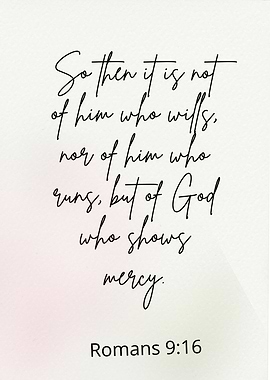 So then it is not
of him who wills,
nor of him who
runs, but of God
who shows
mercy.
Romans 9:16